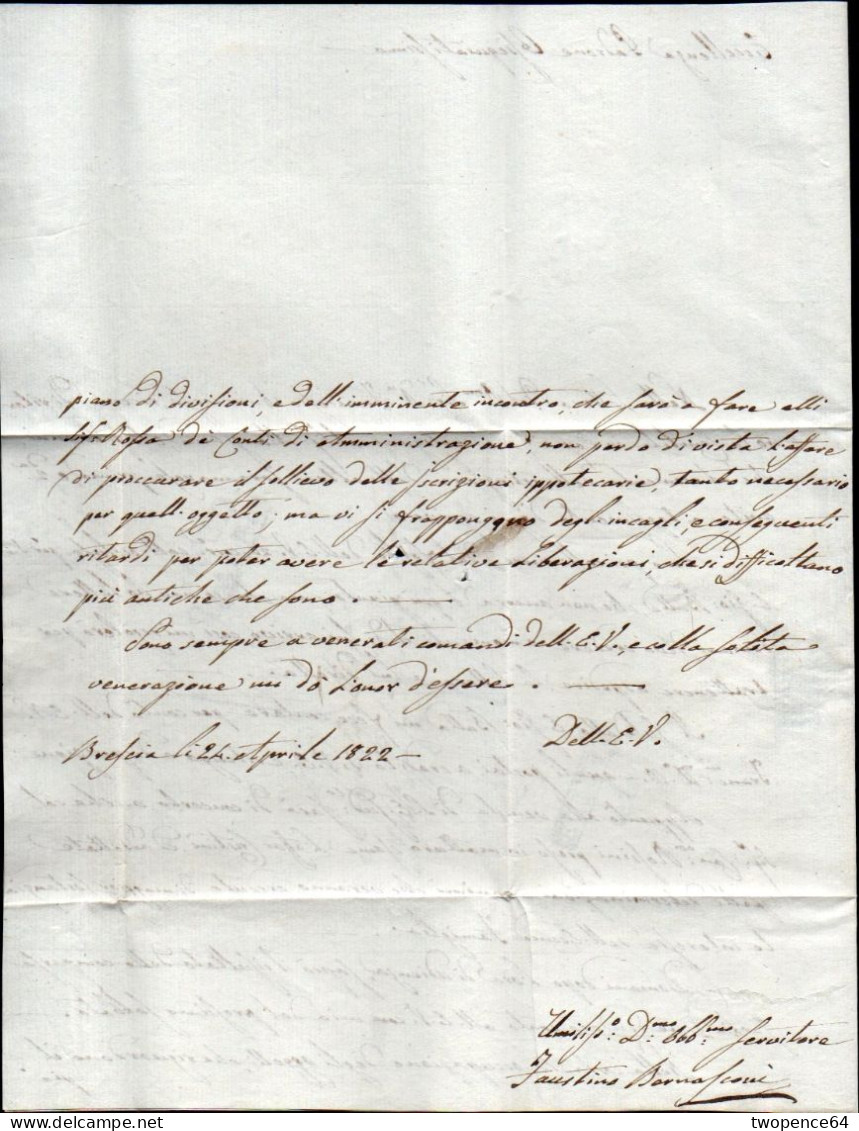 piano di divisioni, e dell'imminente incontro, che sarà a fare alli
Sig.i Rossa de' Conti di Amministrazione, non perdo di vista l'affare
di proccurare il sollievo delle iscrizioni ippotecarie, tanto necessario
per quell'oggetto; ma vi si frappongono degl'incagli, e conseguenti
ritardi per poter avere le relative liberazioni, che si difficoltano
più antiche che sono. —
Sono sempre a venerati comandi dell'E. V., e colla solita
venerazione mi dò l'onor d'essere. —
Dell'E. V.
Brescia li 24. Aprile 1822 —
Umiliss.o D.mo Obb.mo Servitore
Faustino Bernasconi
twopence64